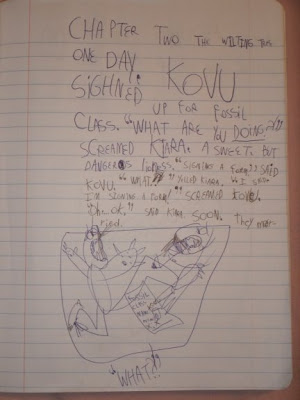 CHAPTER TWO THE WILTING
ONE DAY KOVU
SIGHNED UP FOR FOSSIL
CLASS. "WHAT ARE YOU DOING?!?"
SCREAMED KIARA, A SWEET, BUT
DANGEROUS lioNess. "SIGNING A FORM," SAID
KOVU. "WHAT?" YELLED KIARA. "I SAID
I'M SIGNING A FORM!" SCREAMED KOVU.
"Oh. ok." SAID KIARA. SOON, They mar-
ried.
FOSSIL
CLASS
"WHAT?!"